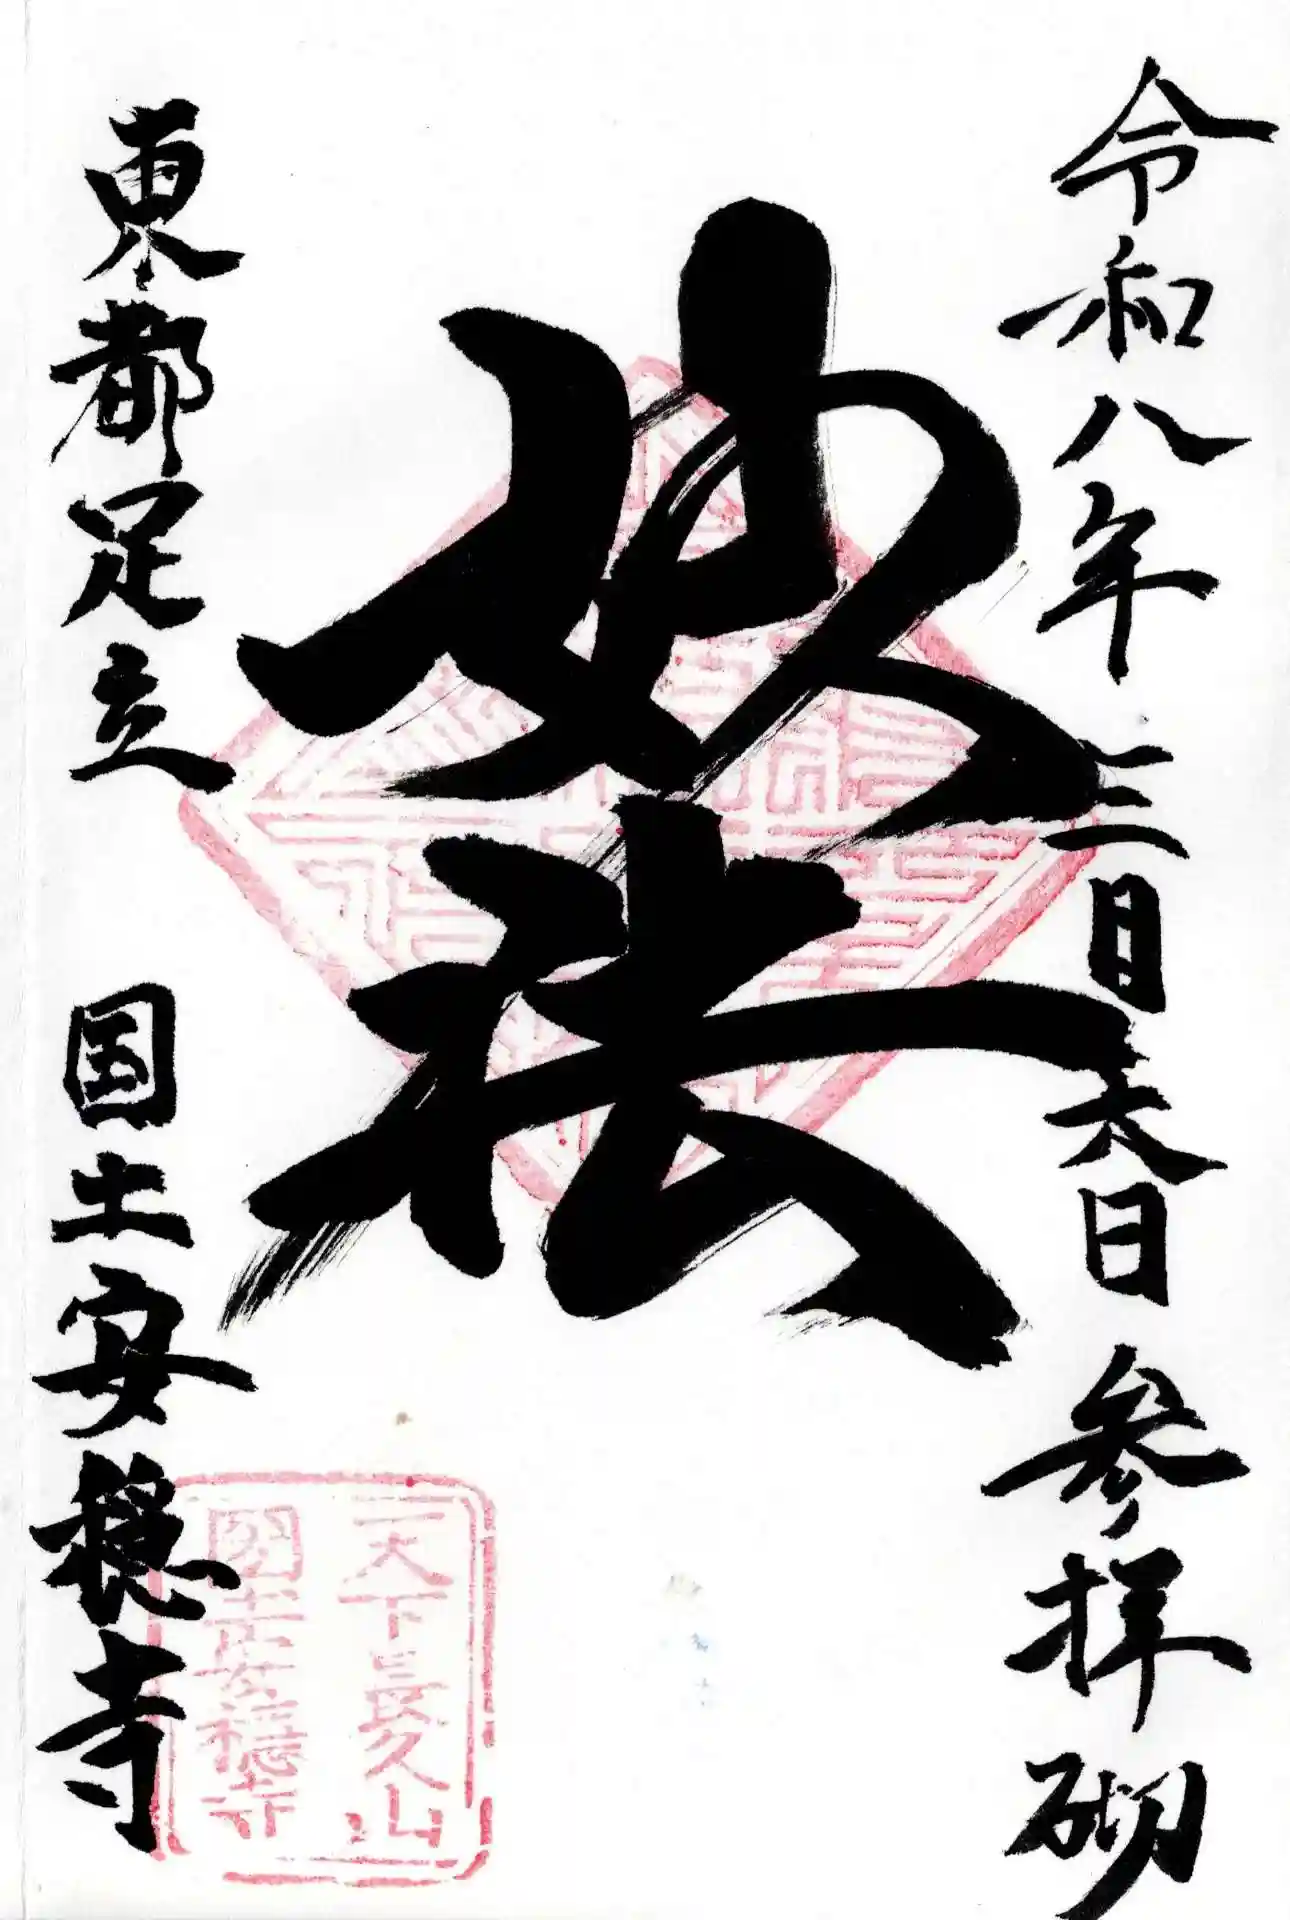 令和八年三月六日 参拝砌
妙法
東都足立 国土安穏寺
天下長久山
国土安穏寺